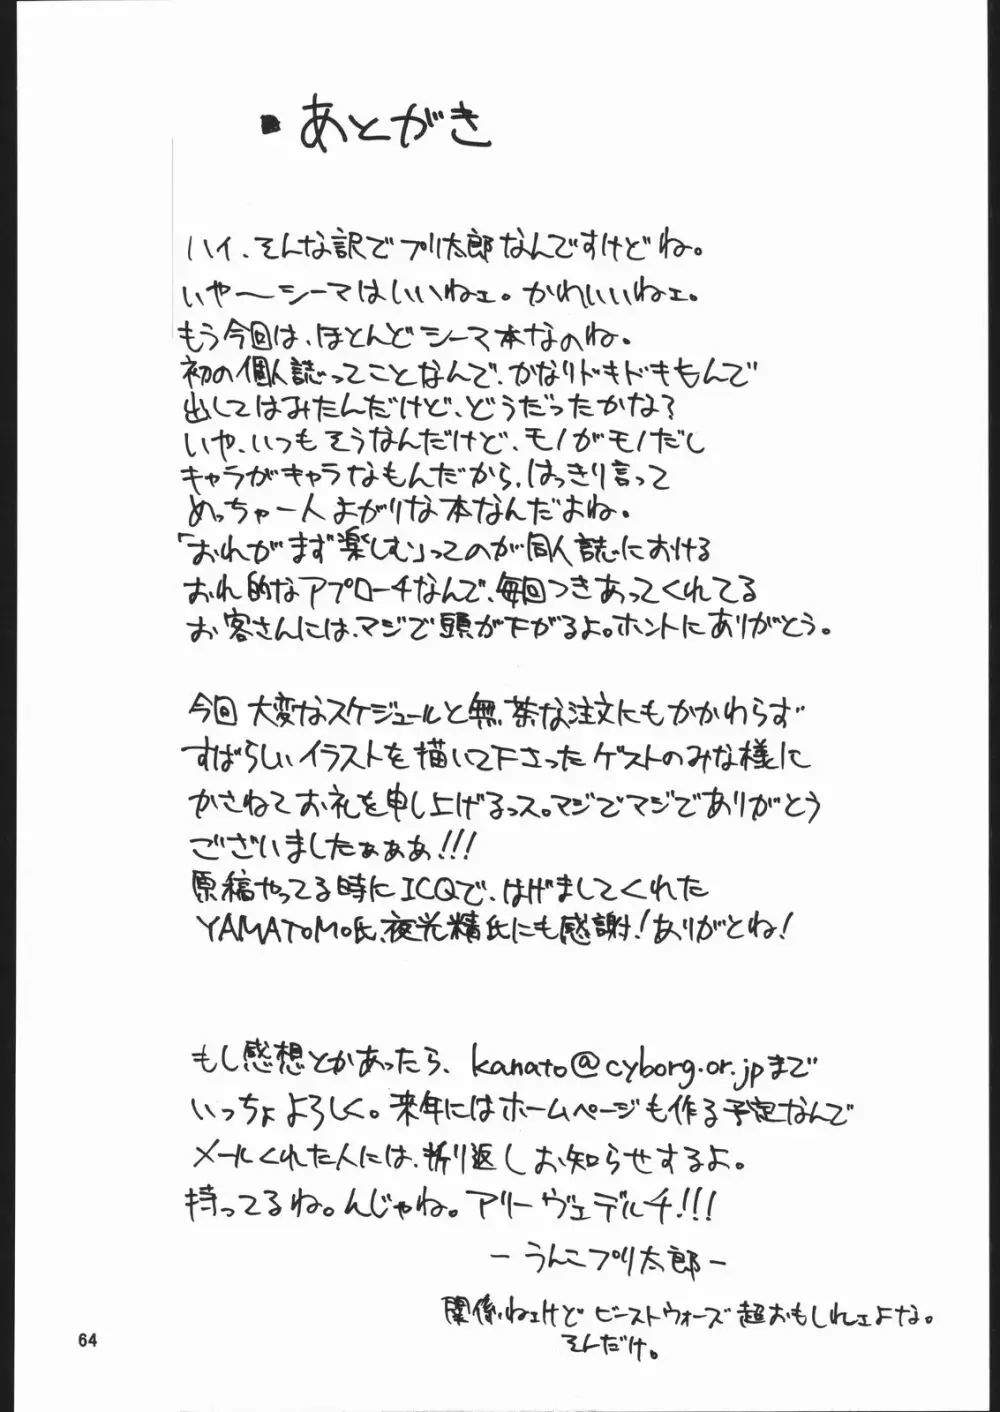 ・あとがき
ハイ、そんな訳でプリ太郎なんですけどね。
いや〜シーマはいいねェ。かわいいねェ。
もう今回は、ほとんどシーマ本なのね。
初の個人誌ってことなんで、かなりドキドキもんで
出してはみたんだけど、どうだったかな?
いや、いつもそうなんだけど、モノがモノだし
キャラがキャラなもんだから、はっきり言って
めっちゃ一人よがりな本なんだよね。
「おれがまず楽しむ」ってのが同人誌における
おれ的なアプローチなんで、毎回つきあってくれてる
お客さんには、マジで頭が下がるよ。ホントにありがとう。
今回大変なスケジュールと無茶な注文にもかかわらず
すばらしいイラストを描いて下さったゲストのみな様に
かさねてお礼を申し上げるっス。マジでマジでありがとう
ございましたぁぁぁ!!!
原稿やってる時にICQで、はげましてくれた
YAMATOMO氏、夜光精氏にも感謝!ありがとね!
もし感想とかあったら、kanato@cyborg.or.jpまで
いっちょよろしく。来年にはホームページも作る予定なんで
メールくれた人には、折り返しお知らせするよ。
持ってるね。んじゃね。アリーヴェデルチ!!!
－うんこプリ太郎－
関係ねェけどビーストウォーズ超おもしれェよな。
そんだけ。
64